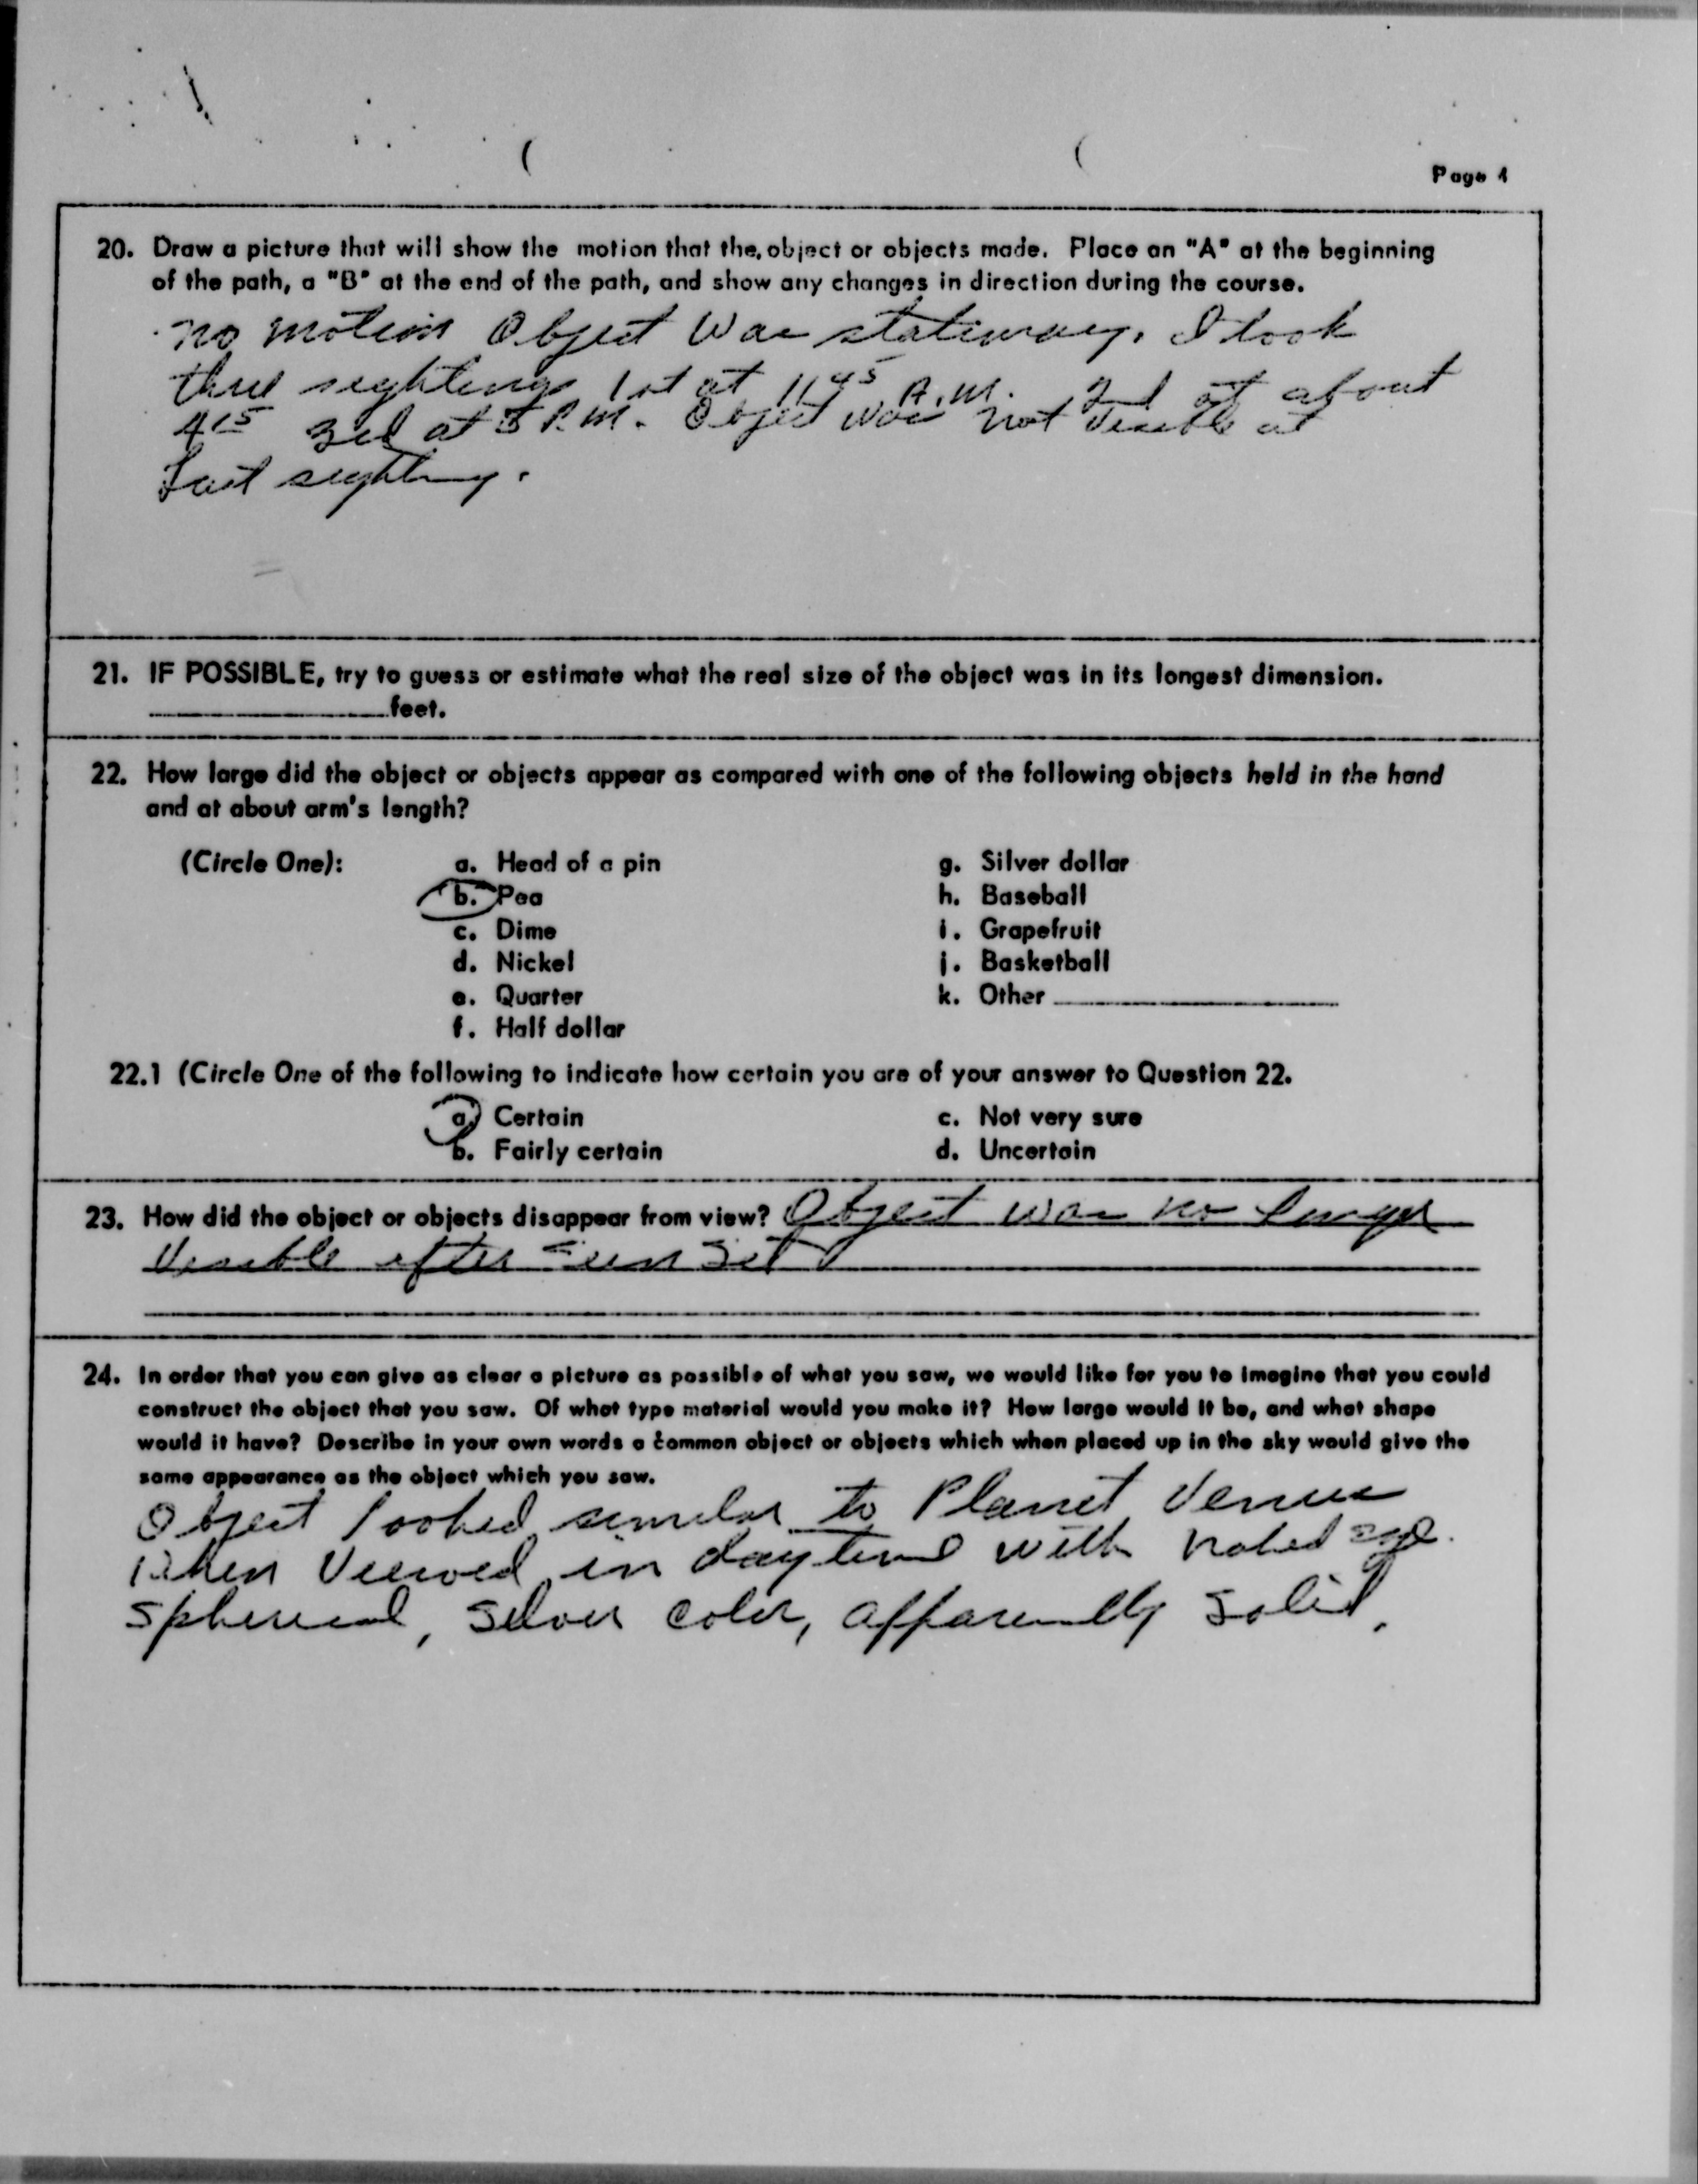 Page 4
20. Draw a picture that will show the motion that the object or objects made. Place an "A" at the beginning
of the path, a "B" at the end of the path, and show any changes in direction during the course.
no motion Object was stationary. I took
three sightings 1st at 11 45 A.M. 2d at about
4 15 3rd at 5 P.M. Object was not visible at
last sighting.
21. IF POSSIBLE, try to guess or estimate what the real size of the object was in its longest dimension.
feet.
22. How large did the object or objects appear as compared with one of the following objects held in the hand
and at about arm's length?
(Circle One): a. Head of a pin g. Silver dollar
b. Pea h. Baseball
c. Dime i. Grapefruit
d. Nickel j. Basketball
e. Quarter k. Other
f. Half dollar
22.1 (Circle One of the following to indicate how certain you are of your answer to Question 22.
a. Certain c. Not very sure
b. Fairly certain d. Uncertain
23. How did the object or objects disappear from view? Object was no longer
visible after sun set
24. In order that you can give as clear a picture as possible of what you saw, we would like for you to imagine that you could
construct the object that you saw. Of what type material would you make it? How large would it be, and what shape
would it have? Describe in your own words a common object or objects which when placed up in the sky would give the
same appearance as the object which you saw.
Object looked similar to Planet Venus
when viewed in daytime with naked eye.
spherical, silver color, apparently solid.